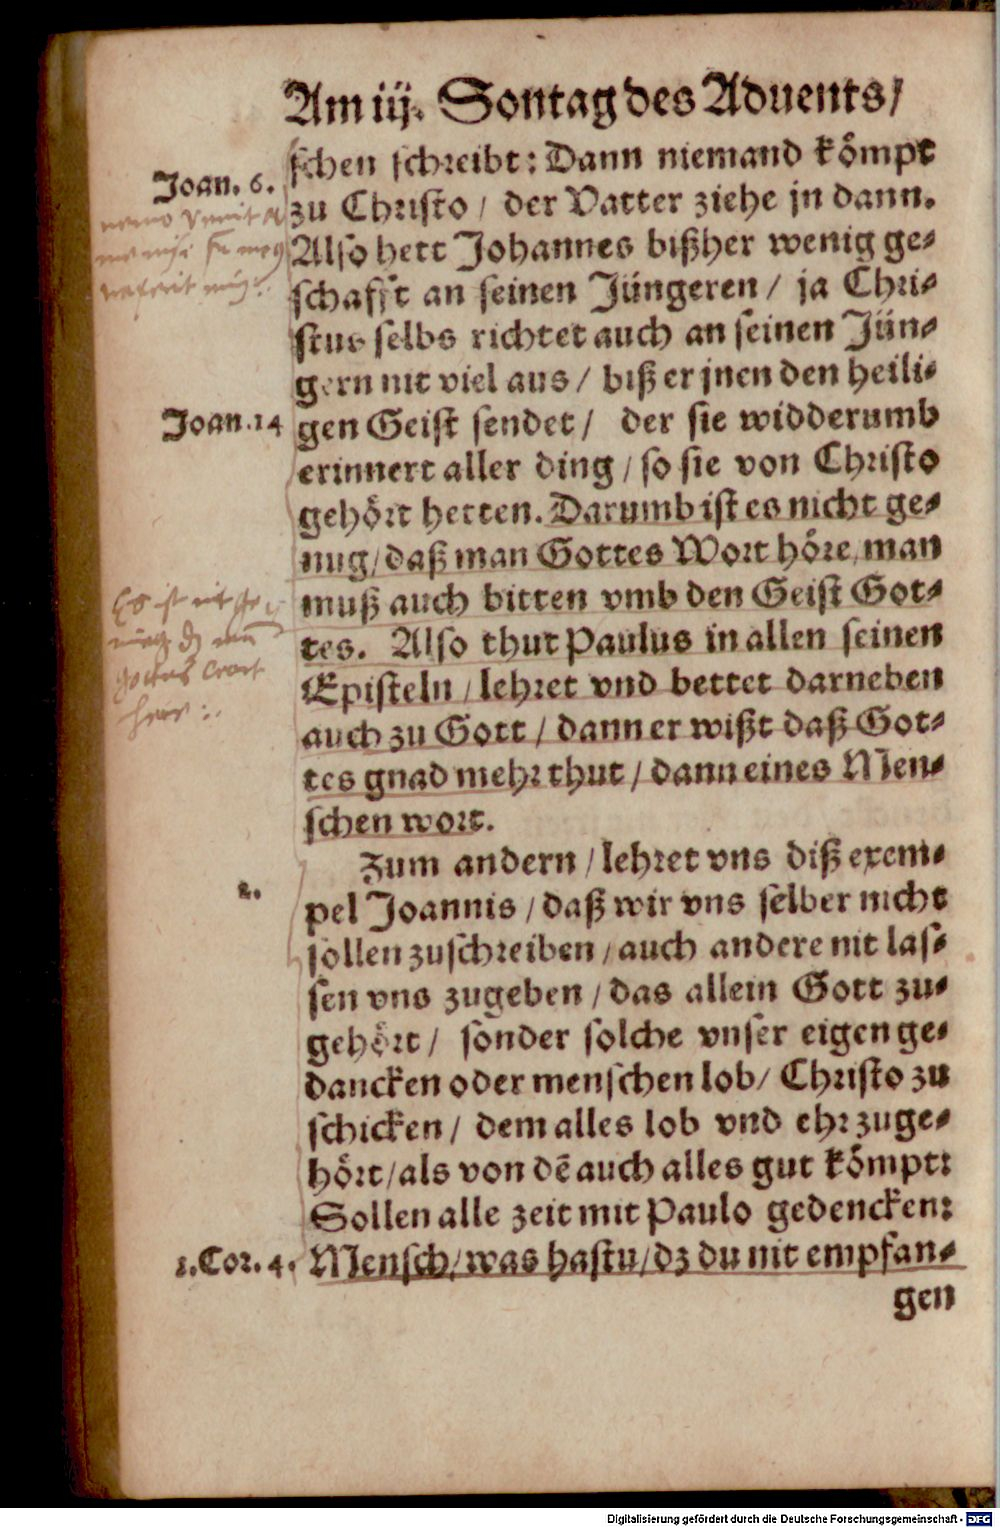 Am iij. Sontag des Aduents/
schen schreibt: Dann niemand kömpt
Joan. 6.
zu Christo / der Vatter ziehe jn dann.
Also hett Johannes bißher wenig ge-
schafft an seinen Jüngeren / ja Chri-
stus selbs richtet auch an seinen Jün-
gern nit viel aus / biß er jnen den heili-
Joan. 14
gen Geist sendet / der sie widderumb
erinnert aller ding / so sie von Christo
gehört hetten. Darumb ist es nicht ge-
nug / daß man Gottes Wort höre, man
muß auch bitten vmb den Geist Got-
Es ist nit
tes. Also thut Paulus in allen seinen
Episteln / lehret vnd bettet darneben
Gottes wort
auch zu Gott / dann er wißt daß Got-
tes gnad mehr thut / dann eines Men-
schen wort.
Zum andern / lehret vns diß exem-
2.
pel Joannis / daß wir vns selber nicht
sollen zuschreiben / auch andere nit las-
sen vns zugeben / das allein Gott zu-
gehört / sonder solche vnser eigen ge-
dancken oder menschen lob / Christo zu
schicken / dem alles lob vnd ehr zuge-
hört / als von dē auch alles gut kömpt:
Sollen alle zeit mit Paulo gedencken:
1. Cor. 4.
Mensch / was hastu / dz du nit empfan-
gen
Digitalisierung gefördert durch die Deutsche Forschungsgemeinschaft - DFG